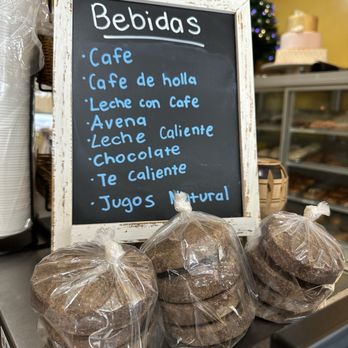 Bebidas
· Cafe
· Cafe de holla
· Leche con Cafe
· Avena
· Leche Caliente
· Chocolate
· Te Caliente
· Jugos Natural